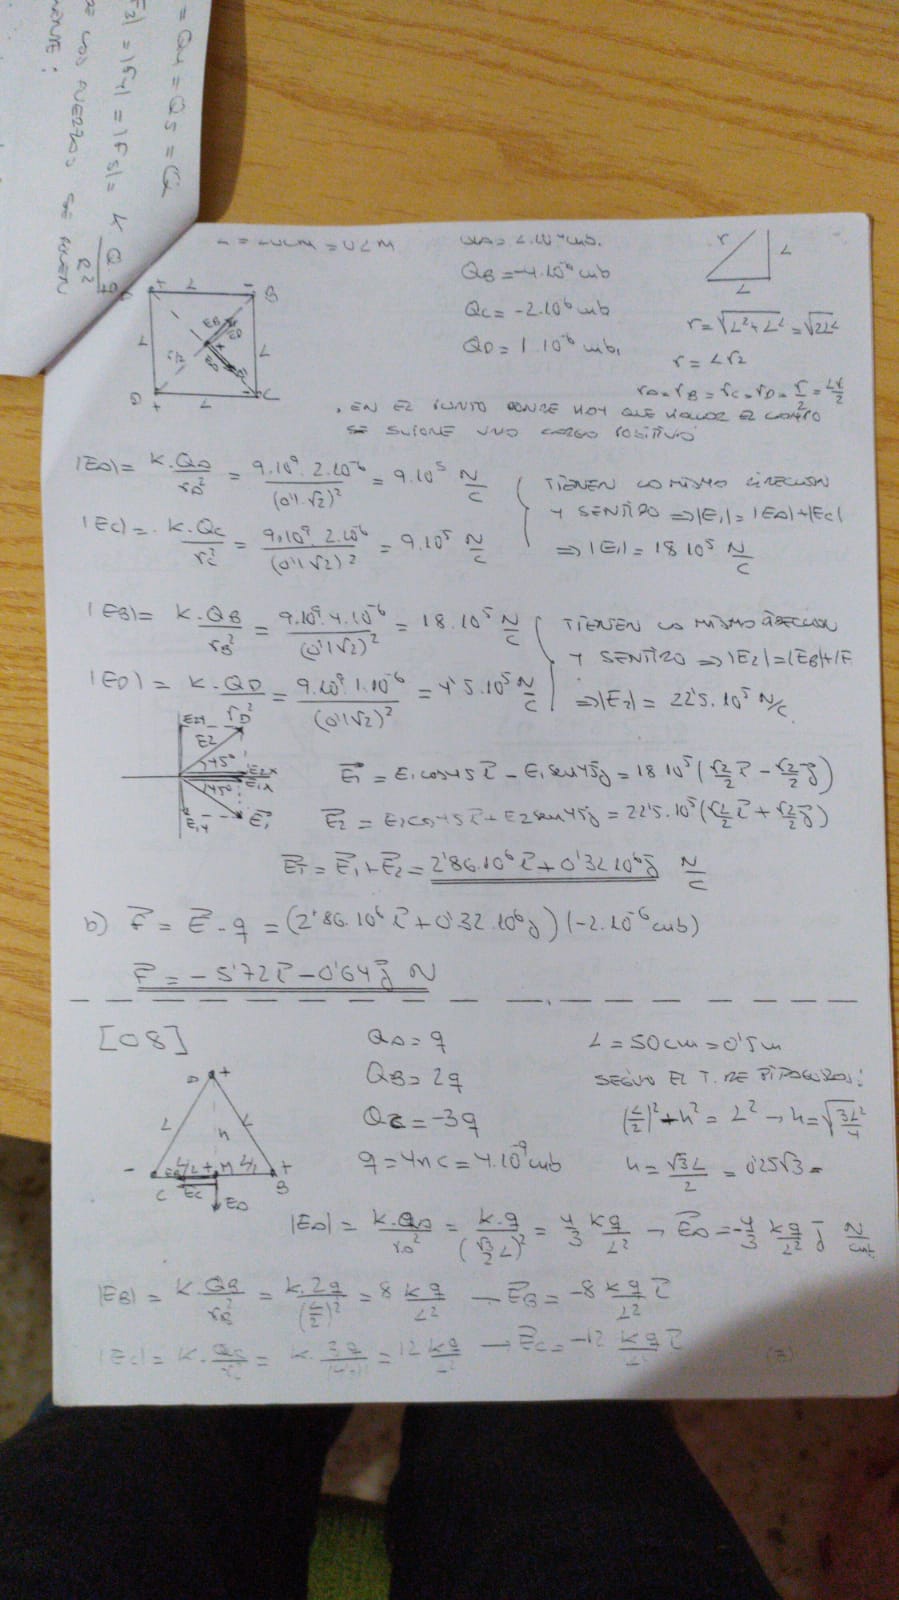 = Q4 = Q5 = Q
F3| = |F4| = |F5| = K Q q / R²
SE
L = 20cm = 0'2M
QA = 2.10⁻⁶ cub.
QB = -4.10⁻⁶ cub
QC = -2.10⁻⁶ cub
QD = 1.10⁻⁶ cub,
r L
L
r = √(L²+L²) = √(2L²)
r = L√2
rA = rB = rC = rD = r/2 = L√2/2
+ L - B
L L
D + L - C
. EN EL PUNTO DONDE HAY QUE HALLAR EL CAMPO
SE SUPONE UNA CARGA POSITIVA
|EA| = K.QA/rA² = 9.10⁹.2.10⁻⁶/(0'1.√2)² = 9.10⁵ N/C
TIENEN LA MISMA DIRECCION
Y SENTIDO ⇒ |E1| = |EA|+|EC|
|EC| = K.QC/rC² = 9.10⁹.2.10⁻⁶/(0'1√2)² = 9.10⁵ N/C
⇒ |E1| = 18.10⁵ N/C
|EB| = K.QB/rB² = 9.10⁹.4.10⁻⁶/(0'1√2)² = 18.10⁵ N/C
TIENEN LA MISMA DIRECCION
Y SENTIDO ⇒ |E2| = |EB|+|E
|ED| = K.QD/rD² = 9.10⁹.1.10⁻⁶/(0'1√2)² = 4'5.10⁵ N/C
⇒ |E2| = 22'5.10⁵ N/C
E2y E2
45° E2x
45° E1x
E1y E⃗1
E⃗1 = E1cos45 i⃗ - E1sen45 j⃗ = 18.10⁵ (√2/2 i⃗ - √2/2 j⃗)
E⃗2 = E2cos45 i⃗ + E2sen45 j⃗ = 22'5.10⁵ (√2/2 i⃗ + √2/2 j⃗)
E⃗T = E⃗1 + E⃗2 = 2'86.10⁶ i⃗ + 0'32.10⁶ j⃗ N/C
b) F⃗ = E⃗ . q = (2'86.10⁶ i⃗ + 0'32.10⁶ j⃗)(-2.10⁻⁶ cub)
F⃗ = -5'72 i⃗ - 0'64 j⃗ N
[08]
QA = q
QB = 2q
QC = -3q
q = 4nC = 4.10⁻⁹ cub
L = 50cm = 0'5m
SEGÚN EL T. DE PITAGORAS:
(L/2)² + h² = L² → h = √(3L²/4)
h = √3L/2 = 0'25√3 =
A +
L h L
- L/2 + M L/2 +
C EB EC EA B
|EA| = K.QA/rA² = K.q/(√3/2 L)² = 4/3 Kq/L² → E⃗A = -4/3 Kq/L² j⃗ N/cub
|EB| = K.QB/rB² = K.2q/(L/2)² = 8 Kq/L² → E⃗B = -8 Kq/L² i⃗
|EC| = K.QC/rC² = K.3q/(L/2)² = 12 Kq/L² → E⃗C = -12 Kq/L² i⃗
(3)